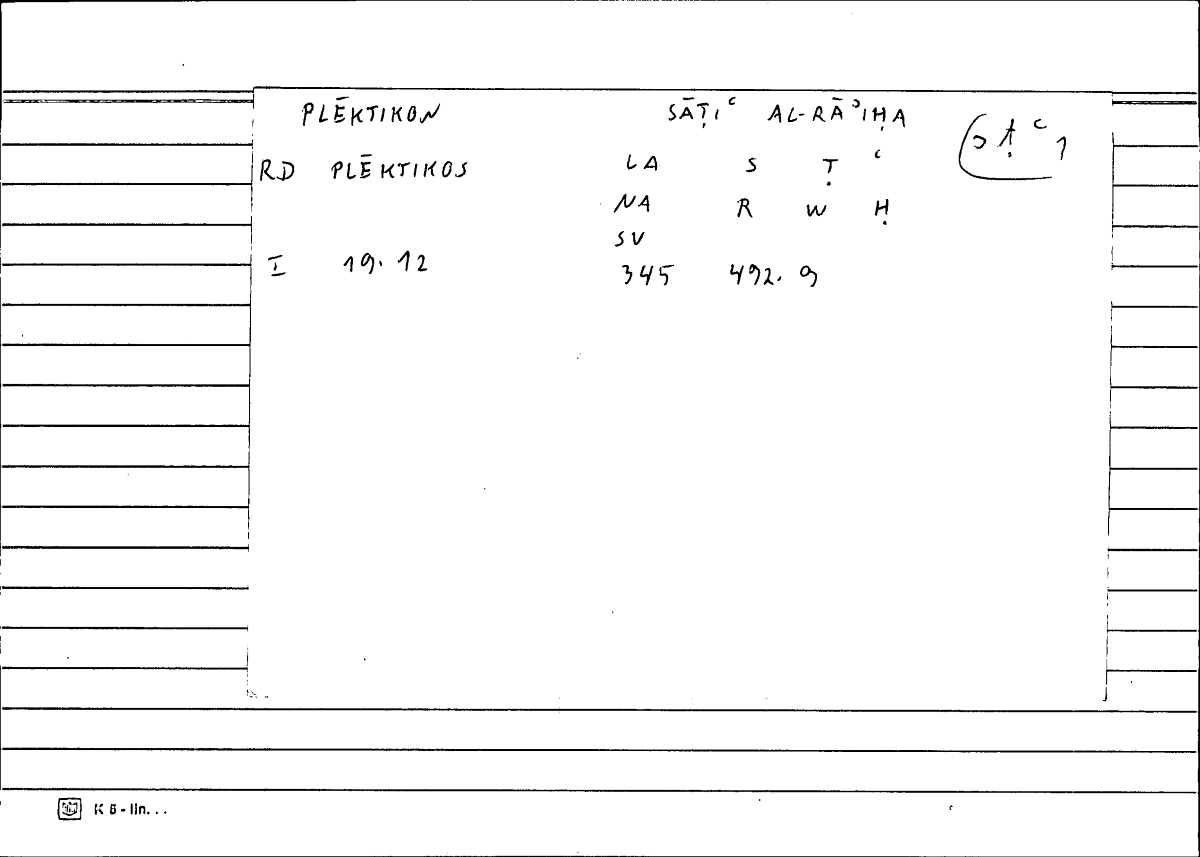 PLĒKTIKON SĀṬIʿ AL-RĀʾIḤA
RD PLĒKTIKOS LA S Ṭ ʿ
NA R W Ḥ
SV
I 19.12 345 492.9
K 6 - lin...